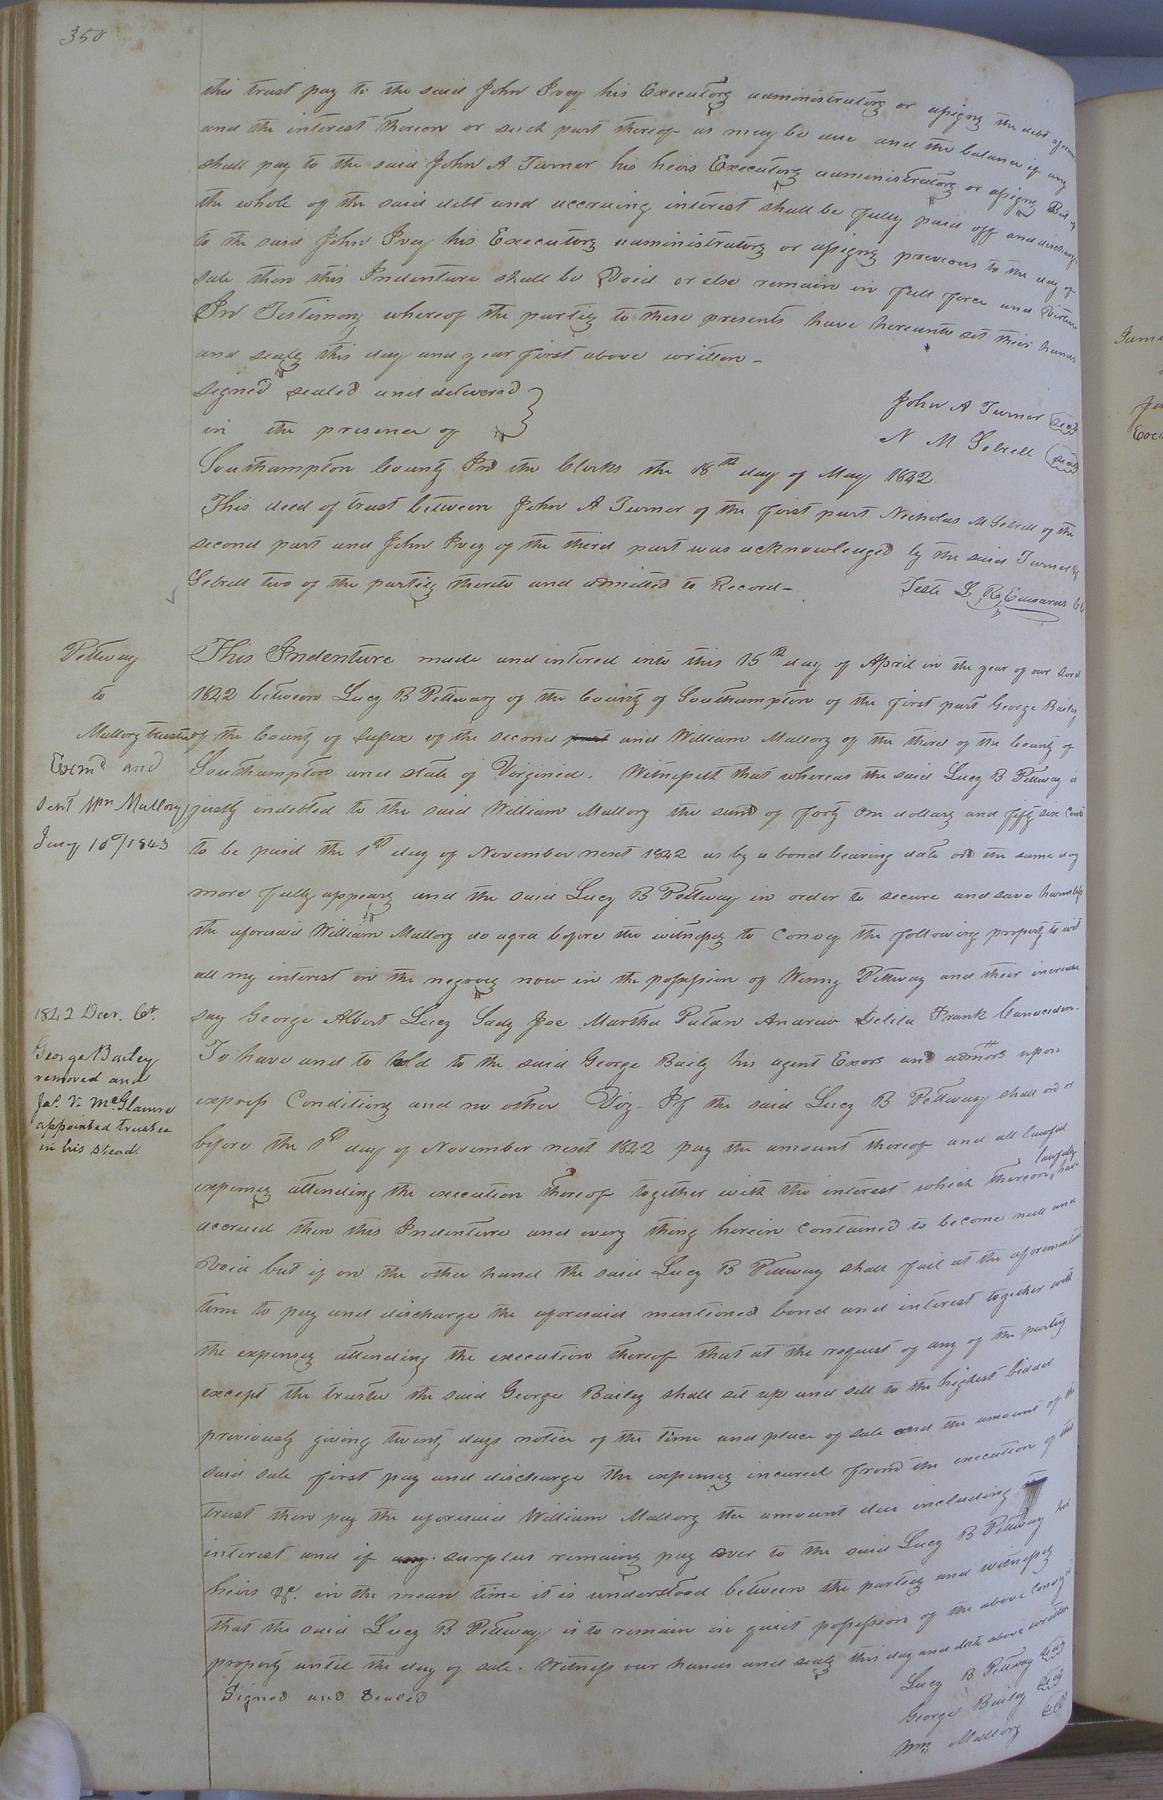 350
this trust pay to the said John Ivey his Executors administrators or assigns the debt
and the interest thereon or such part thereof as may be due and the balance if any
shall pay to the said John A Turner his heirs Executors administrators or assigns But if
the whole of the said debt and accruing interest shall be fully paid off and discharged
to the said John Ivey his Executors administrators or assigns previous to the day of
sale then this Indenture shall be Void or else remain in full force and Virtue
In Testimony whereof the parties to these presents have hereunto set their hands
and seals this day and year first above written
signed sealed and delivered
in the presence of
John A Turner seal
N M Sebrell seal
Southampton County In the Clerks the 18th day of May 1842
This deed of trust between John A Turner of the first part Nicholas M Sebrell of the
second part and John Ivey of the third part was acknowledged by the said Turner &
Sebrell two of the parties thereto and admitted to Record
Teste L R Edwards
Pettway
to
Mallory trustee
Exemd and
Sent Wm Mallory
Jany 16th 1843
This Indenture made and intered into this 15th day of April in the year of our Lord
1842 between Lucy B Pettway of the County of Southampton of the first part George Baily
of the County of Sussex of the second part and William Mallory of the third of the County of
Southampton and state of Virginia. Witnesseth that whereas the said Lucy B Pettway is
justly indebted to the said William Mallory the sum of forty one dollars and fifty six Cents
to be paid the 1st day of November next 1842 as by a bond bearing date on the same day
more fully appears and the said Lucy B Pettway in order to secure and save harmless
the aforesaid William Mallory do agree before the witnesses to Convey the following property to wit
all my interest in the negroes now in the possession of Winny Pettway and their increase
say George Albert Lucy Sady Joe Martha Andrew Delila Frank
1842 Decr. 6th
George Bailey
removed and
Jas. V. McGlamre
appointed trustee
in his stead.
To have and to hold to the said George Baily his agent Exors and admors upon
express Conditions and no other Viz. If the said Lucy B Pettway shall on or
before the 1st day of November next 1842 pay the amount thereof and all lawful
expenses attending the execution thereof together with the interest which thereon lawfully have
accrued then this Indenture and every thing herein Contained to become null and
Void but if on the other hand the said Lucy B Pettway shall fail at the aforementioned
time to pay and discharge the aforesaid mentioned bond and interest together with
the expenses attending the execution thereof that at the request of any of the parties
except the trustee the said George Bailey shall set up and sell to the highest bidder
previously giving twenty days notice of the time and place of sale and the amount of the
said sale first pay and discharge the expenses incured from the execution of this
trust then pay the aforesaid William Mallory the amount due including the
interest and if any surplus remains pay over to the said Lucy B Pettway her
heirs &c. in the mean time it is understood between the parties and witnesses
that the said Lucy B Pettway is to remain in quiet possession of the above
property until the day of sale. Witness our hands and seals this day and date above written
Signed and Sealed
Lucy B Pettway seal
George Bailey seal
Wm Mallory seal